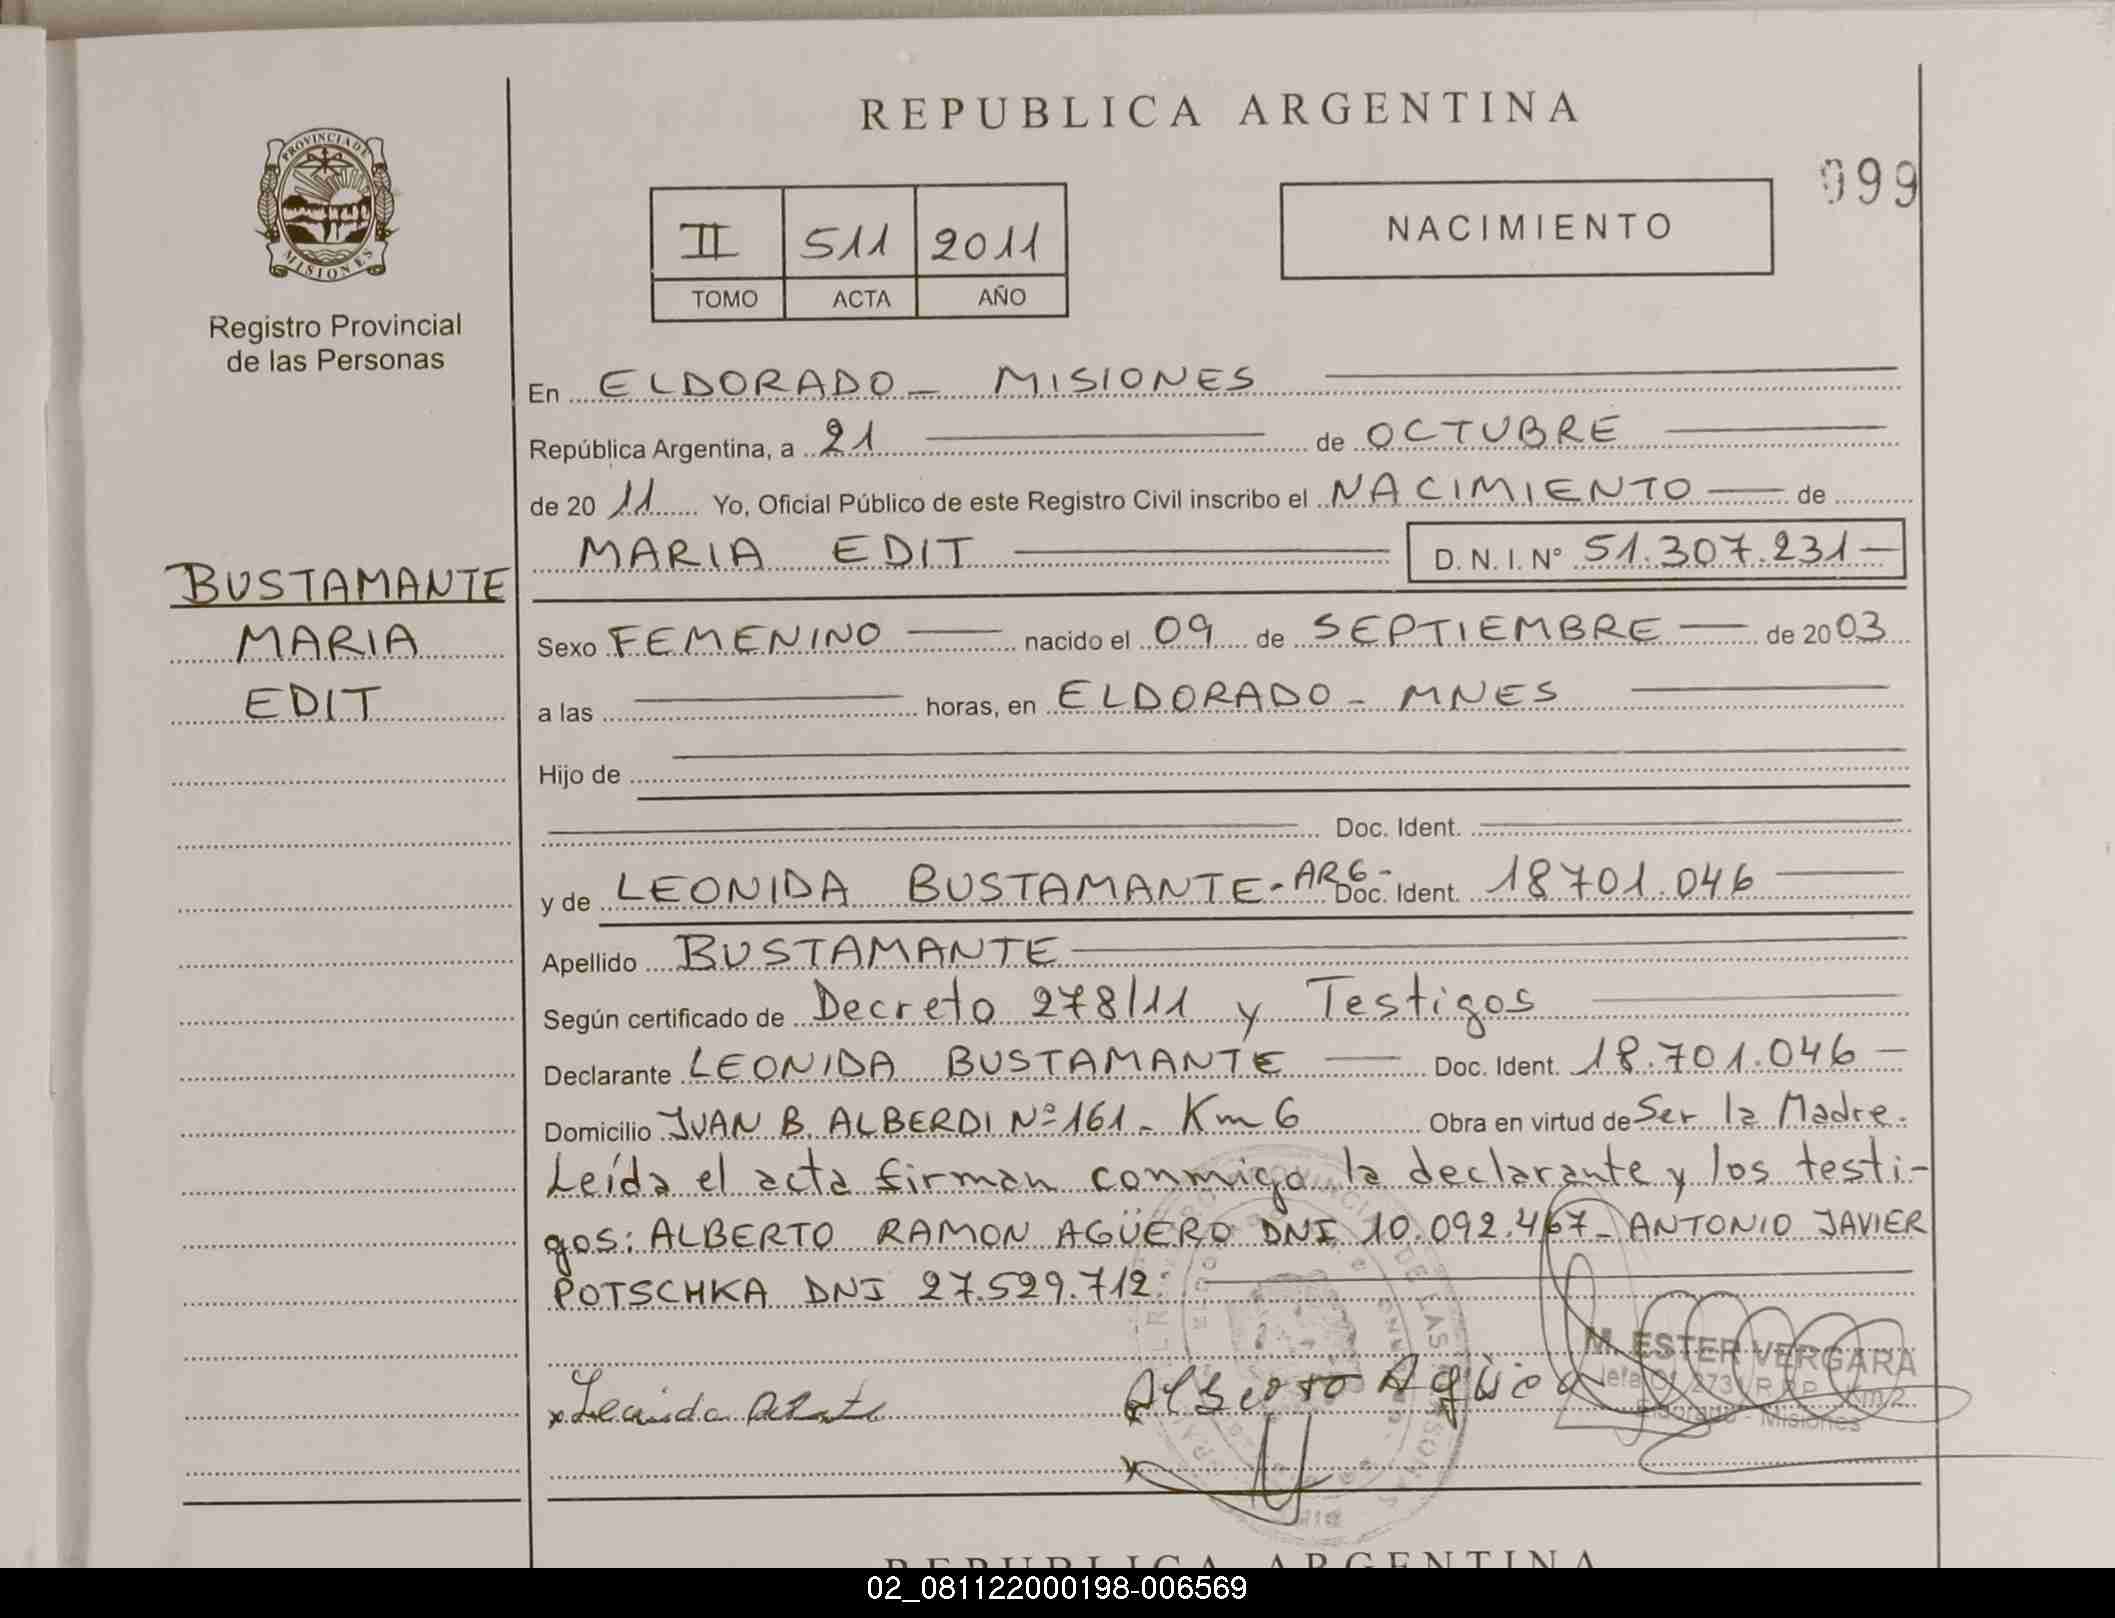 REPUBLICA ARGENTINA
099
PROVINCIA DE
MISIONES
Registro Provincial
de las Personas
II 511 2011
TOMO ACTA AÑO
NACIMIENTO
En ELDORADO - MISIONES
República Argentina, a 21 de OCTUBRE
de 2011 Yo, Oficial Público de este Registro Civil inscribo el NACIMIENTO de
MARIA EDIT D. N. I. Nº 51.307.231
BUSTAMANTE
MARIA
EDIT
Sexo FEMENINO nacido el 09 de SEPTIEMBRE de 2003
a las horas, en ELDORADO - MNES
Hijo de
Doc. Ident.
y de LEONIDA BUSTAMANTE - ARG - Doc. Ident. 18701.046
Apellido BUSTAMANTE
Según certificado de Decreto 278/11 y Testigos
Declarante LEONIDA BUSTAMANTE Doc. Ident. 18.701.046
Domicilio JUAN B. ALBERDI Nº 161 - Km 6 Obra en virtud de Ser la Madre.
Leída el acta firman conmigo la declarante y los testi-
gos: ALBERTO RAMON AGÜERO DNI 10.092.467 - ANTONIO JAVIER
POTSCHKA DNI 27.529.712.
M. ESTER VERGARA
Jefa Of. 2731 R.P.P. Km2
Eldorado - Misiones
Alberto Agüero
REPUBLICA ARGENTINA
02_081122000198-006569